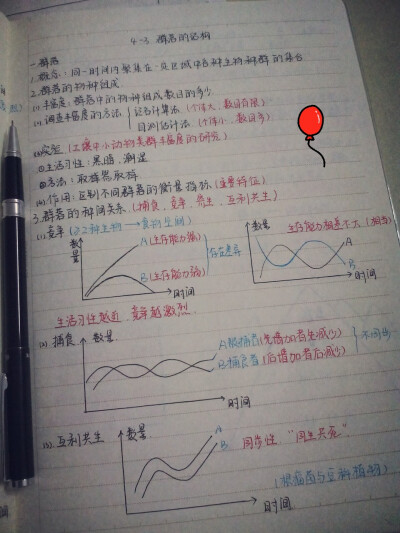 4-3 群落的结构
一.群落
1.概念:同一时间内聚集在一定区域中各种生物种群的集合
2.群落的物种组成
(1)丰富度:群落中的物种组成数目的多少
(2)调查丰富度的方法 记名计算法(个体大、数目有限)
目测估计法(个体小、数目多)
(3)实验(土壤中小动物类群丰富度的研究)
①生活习性:黑暗、潮湿
②方法:取样器取样
(4)作用:区别不同群落的衡量指标(重要特征)
3.群落的种间关系(捕食、竞争、寄生、互利共生)
(1)竞争(≥2种生物→食物空间)
数量
A(生存能力强)
B(生存能力弱)
存在差异
时间
数量
生存能力相差不大(相当)
A
B
时间
生活习性越近,竞争越激烈.
(2)捕食
数量
A被捕食(先增加者先减少)
B捕食者(后增加者后减少)
不同步
时间
(3)互利共生
数量
A
B
同步性,"同生共死"
(根瘤菌与豆科植物)
时间